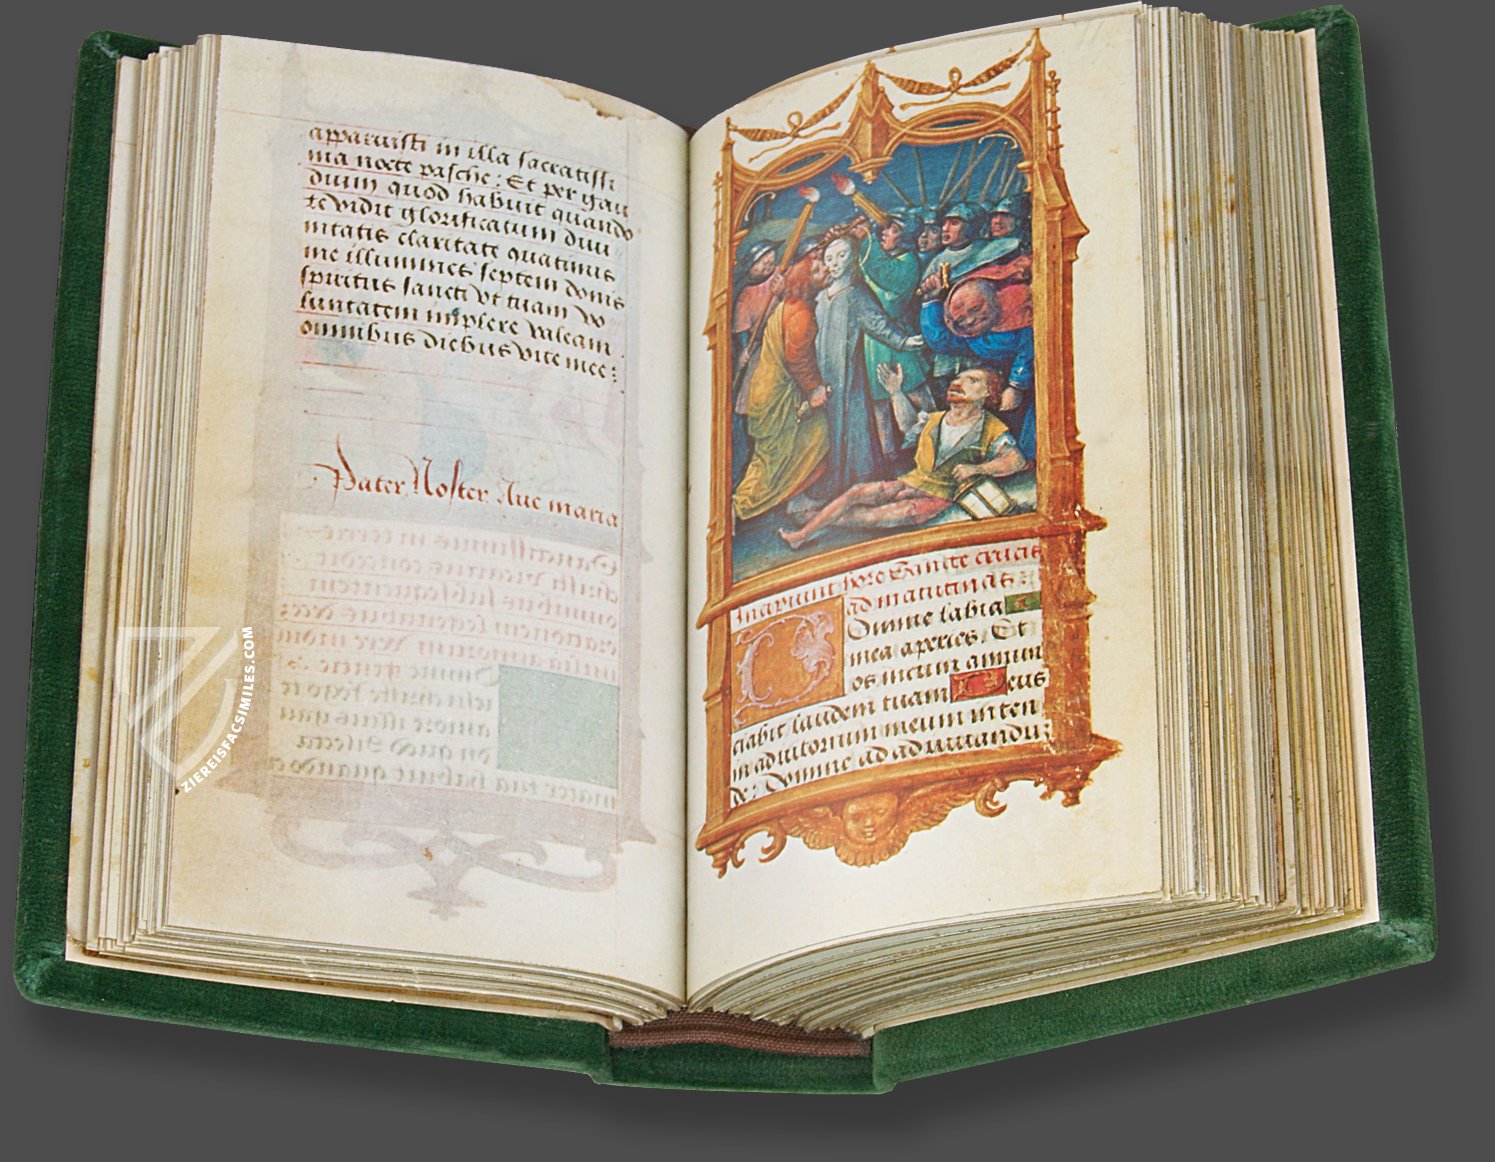 apparuisti in illa sacratissi
ma nocte pasche: Et per gau
dium quod habuit quando
te vidit glorificatum divi
nitatis claritate quatinus
me illumines septem donis
spiritus sancti vt tuam vo
luntatem implere valeam
omnibus diebus vite mee:
Pater Noster Aue maria
Incipiunt hore Sancte crucis
ad matutinas:
Domine labia
mea aperies. Et
os meum annun
ciabit laudem tuam Deus
in adiutorium meum inten
de: Domine ad adiuuandu:
ZIEREISFACSIMILES.COM